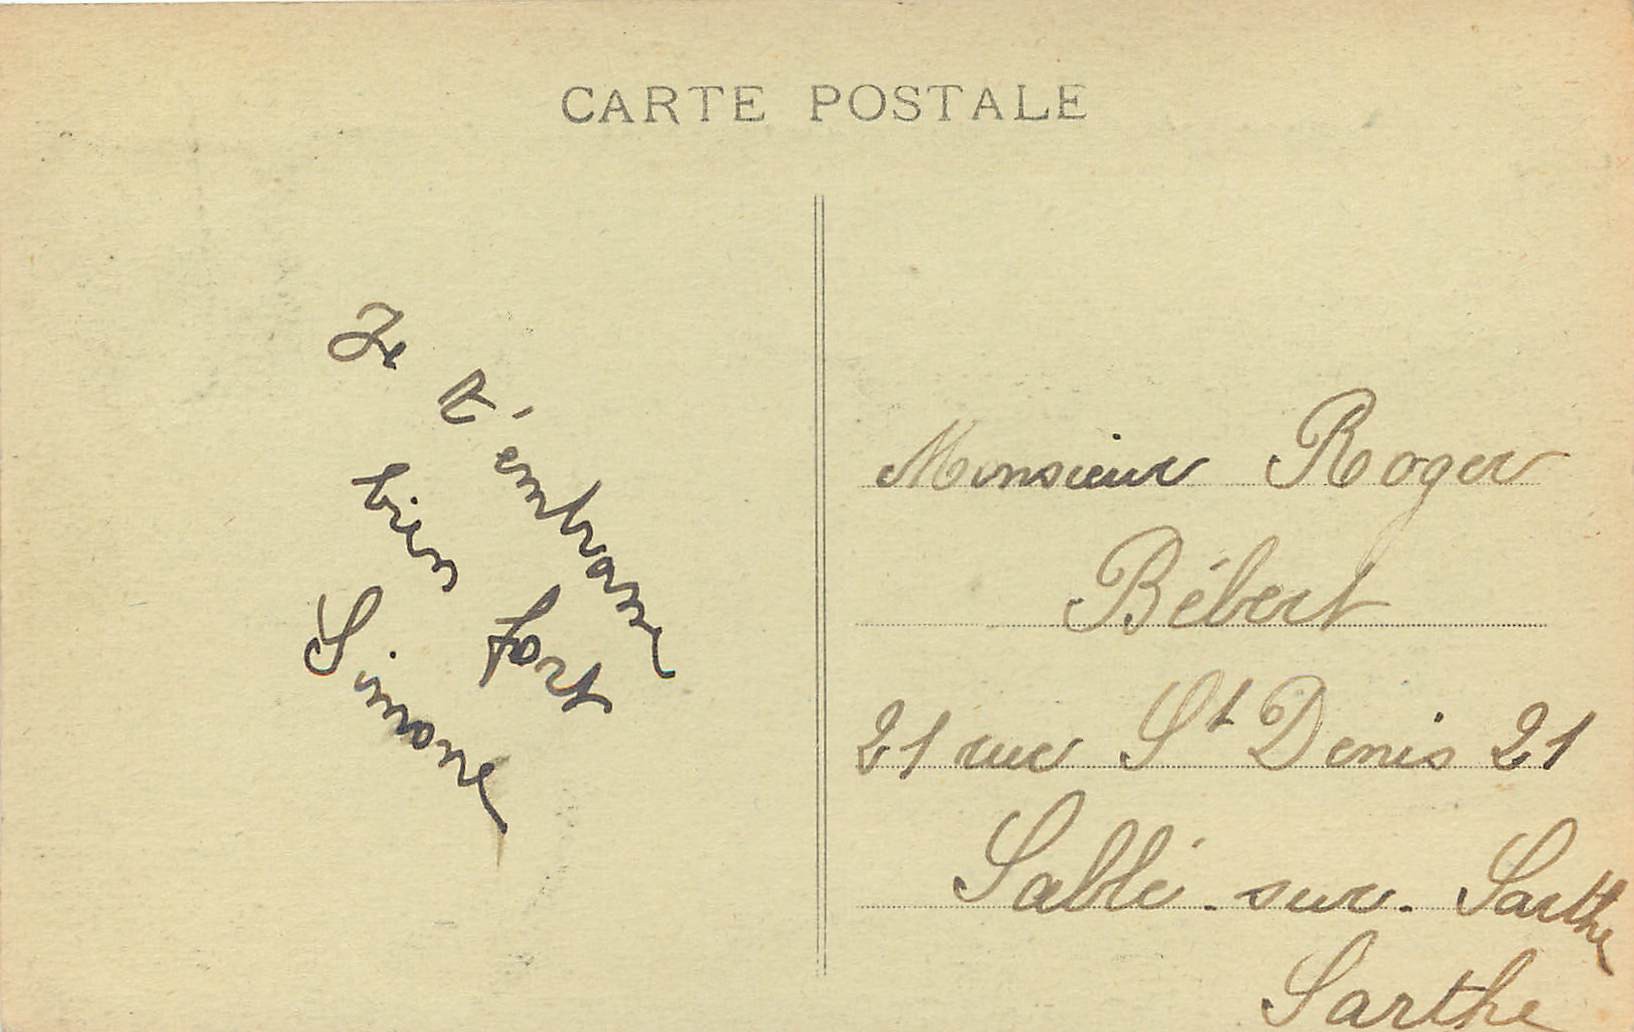 CARTE POSTALE
Je t'embrasse
bien fort
Simone
Monsieur Roger
Bébert
21 rue St Denis 21
Sablé-sur-Sarthe
Sarthe